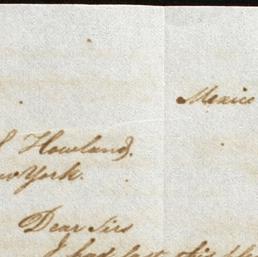 Mexico
Howland.
York.
Dear Sirs
I had last this